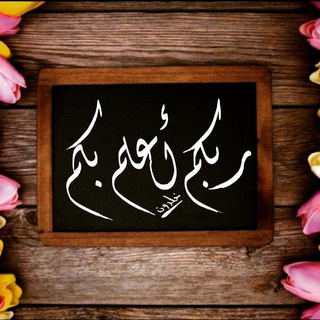 ربكم أعلم بكم
خلدون